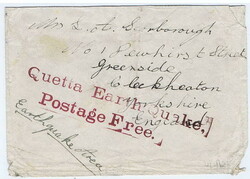 Mrs S. A. Scarborough
No 1 Pewhirst Street
Greenside
Cleckheaton
Yorkshire
England
Quetta Earthquake,
Postage Free.
Earthquake Area